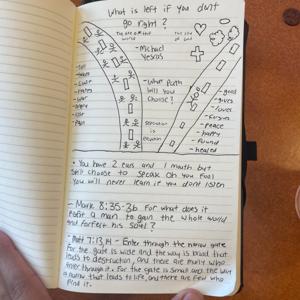 What is left if you dont
go right?
The way of the world
The way of God
- Michael
Yesras
- What Path
will you
choose?
seperation
is
- fall
- takes
- hates
- liar
- Angry
- Pain
- good
- gives
- loves
- forgives
- peace
- happy
- found
- healed
• You have 2 ears and 1 mouth but
still choose to speak Oh you fool
You will never learn if you dont listen
- Mark 8:35-36 For what does it
profit a man to gain the whole world
and forfeit his soul?
- Matt 7:13,14 - Enter through the narrow gate
For the gate is wide and the way is broad that
leads to destruction, and there are many who
enter through it. For the gate is small and the way
is narrow that leads to life, and there are few who
find it.